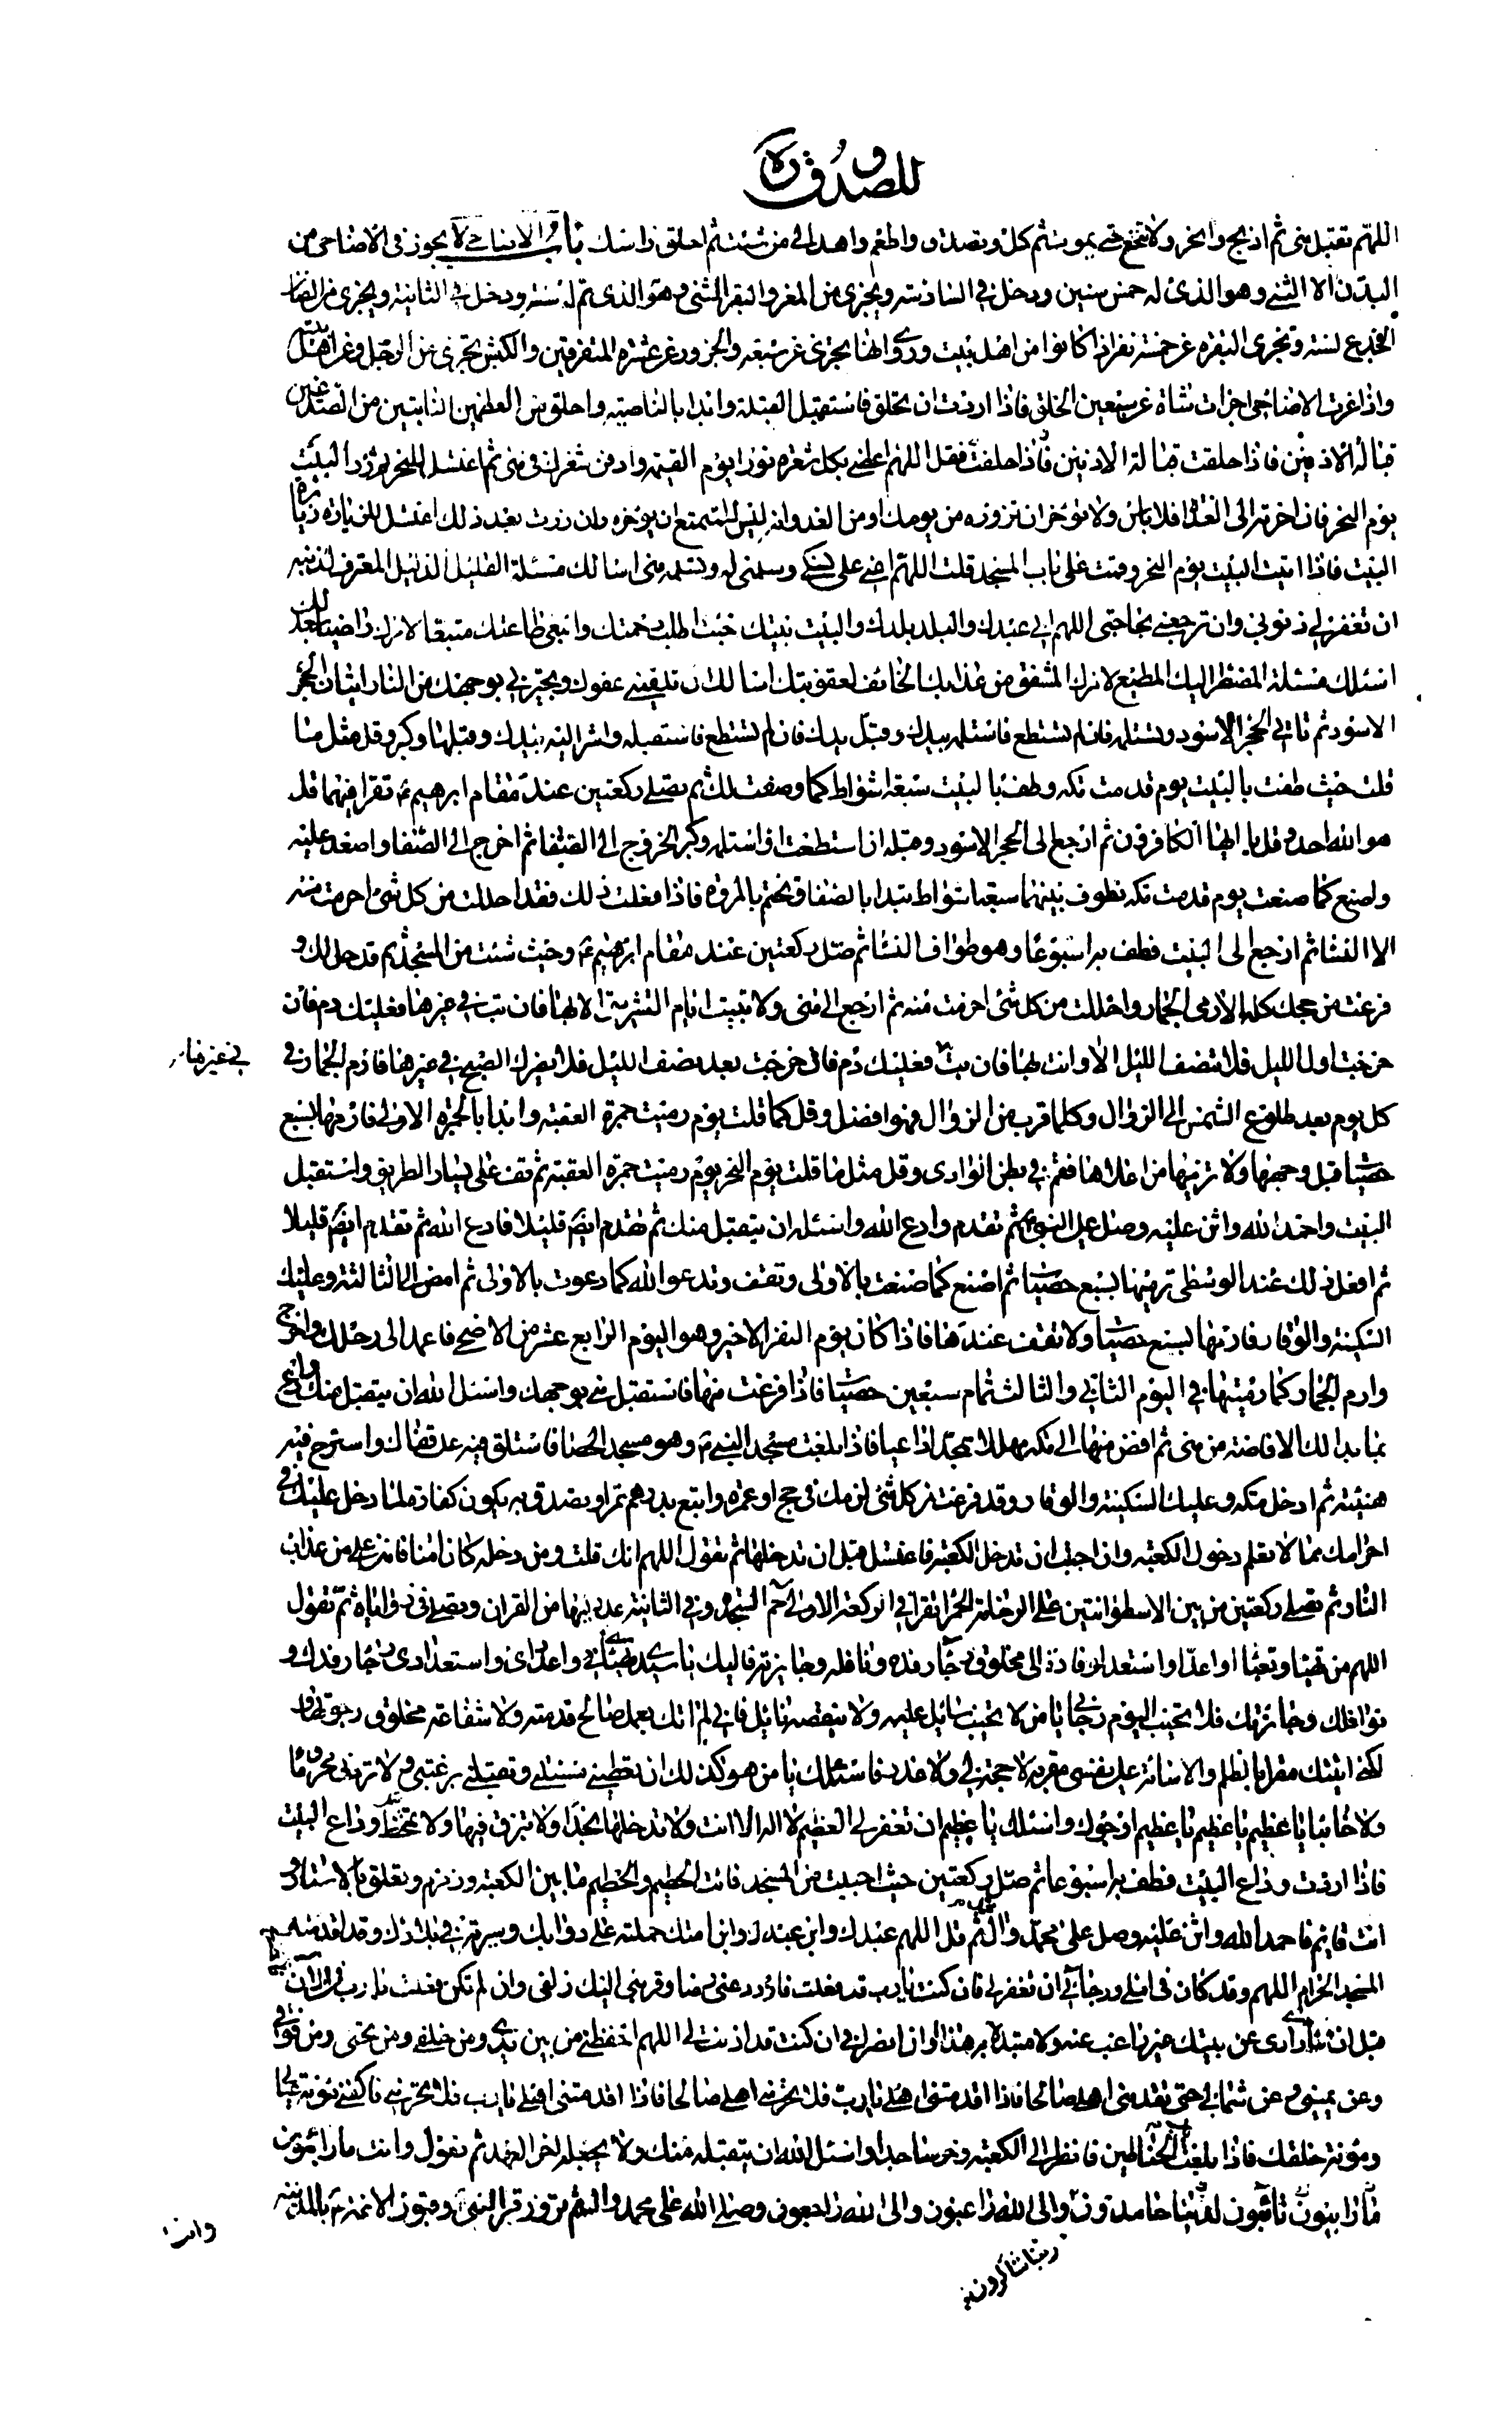 للصدوق ره
اللهم تقبل مني ثم اذبح وانحر ولا تنخع حتى يموت ثم كل وتصدق واطعم واهد الى من شئت ثم احلق راسك باب الاضاحي لا يجوز في الاضاحي من
البدن الا الثني وهو الذي له خمس سنين ودخل في السادسة ويجزي من المعز والبقر الثني وهو الذي تم له سنة ودخل في الثانية ويجزي من الضان
الجذع لسنة وتجزى البقرة عن خمسة نفر اذا كانوا من اهل بيت وروي انها تجزي عن سبعة والجزور عن عشرة متفرقين والكبش يجزي عن الرجل وعن اهل بيته
واذا عزت الاضاحي اجزات شاة عن سبعين الحلق فاذا اردت ان تحلق فاستقبل القبلة وابدا بالناصية واحلق من العظمين النابتين من الصدغين
قبالة الاذنين فاذا حلقت فقل اللهم اعطني بكل شعرة نورا يوم القيمة وادفن شعرك في منى ثم اغتسل للنحر وزر البيت
يوم النحر فان اخرته الى الغد فلا باس ولا تؤخر ان تزوره من يومك او من الغد وانه ليس للمتمتع ان يؤخره وان زرت بعد ذلك اغتسل للزيارة زيارة
البيت فاذا اتيت البيت يوم النحر وقمت على باب المسجد قلت اللهم اعني على نسكك وسلمني له وسلمه مني اسالك مسئلة القليل الذليل المعترف لذنبه
ان تغفر لي ذنوبي وان ترجعني بحاجتي اللهم اني عبدك والبلد بلدك والبيت بيتك جئت اطلب رحمتك وابتغي طاعتك متبعا لامرك راضيا لعدلك
اسئلك مسئلة المضطر اليك المطيع لامرك المشفق من عذابك الخائف لعقوبتك اسالك ان تلقيني عفوك وتجيرني بوجهك من النار اتيان الحجر
الاسود ثم تاتي الحجر الاسود وتستلمه فان لم تستطع فاستلمه بيدك وقبل يدك فان لم تستطع فاستقبله واشر اليه بيدك وقبلها وكبر وقل مثل ما
قلت حيث طفت بالبيت يوم قدمت مكه وطف بالبيت سبعة اشواط كما وصفت لك ثم تصلي ركعتين عند مقام ابرهيم ع تقرا فيهما قل
هو الله احد وقل يا ايها الكافرون ثم ارجع الى الحجر الاسود وقبله ان استطعت او استلمه وكبر الخروج الى الصفا ثم اخرج الى الصفا واصعد عليه
واصنع كما صنعت يوم قدمت مكه تطوف بينهما سبعة اشواط تبدا بالصفا وتختم بالمروة فاذا فعلت ذلك فقد احللت من كل شئ احرمت منه
الا النساء ثم ارجع الى البيت فطف به اسبوعا وهو طواف النساء ثم صل ركعتين عند مقام ابرهيم ع وحيث شئت من المسجد ثم قد حل لك و
فرغت من حجك كله الا رمي الجمار واحللت من كل شئ احرمت منه ثم ارجع الى منى ولا تبيت ايام التشريق الا بها فان بت في غيرها فعليك دم فان
خرجت اول الليل فلا ينتصف الليل الا وانت بها فان بت فعليك دم فان خرجت بعد نصف الليل فلا يضرك الصبح في غيرها فارم الجمار في
في غيرها
كل يوم بعد طلوع الشمس الى الزوال وكلما قرب من الزوال فهو افضل وقل كما قلت يوم رميت جمرة العقبة وابدا بالجمرة الاولى فارمها بسبع
حصيات قبل وجهها ولا ترميها من اعلاها فقم في بطن الوادي وقل مثل ما قلت يوم النحر يوم رميت جمرة العقبة ثم قف على يسار الطريق واستقبل
البيت واحمد الله واثن عليه وصل على النبي ص ثم تقدم وادع الله واسئله ان يتقبل منك ثم تقدم ايضا قليلا فادع الله ثم تقدم ايضا قليلا
ثم افعل ذلك عند الوسطى ترميها بسبع حصيات ثم اصنع كما صنعت بالاولى وتقف وتدعو الله كما دعوت بالاولى ثم امض الى الثالثة وعليك
السكينة والوقار فارمها بسبع حصيات ولا تقف عندها فاذا كان يوم النفر الاخير وهو اليوم الرابع عشر من الاضحى فاعد الى رحلك واخرج
وارم الجمار كما رميتها في اليوم الثاني والثالث تمام سبعين حصيات فاذا فرغت منها فاستقبل منى بوجهك واسئل الله ان يتقبل منك وادع
بما بدا لك الافاضة من منى ثم افض منها الى مكه مهللا ممجدا داعيا فاذا بلغت مسجد النبي ص وهو مسجد الحصا فاستلق فيه على قفاك واسترح فيه
هنيئة ثم ادخل مكه وعليك السكينة والوقار وقد فرغت من كل شئ لزمك في حج او عمرة وابتع بدرهم تمرا وتصدق به يكون كفارة لما دخل عليك في
احرامك مما لا تعلم دخول الكعبه وان احببت ان تدخل الكعبة فاغتسل قبل ان تدخلها ثم تقول اللهم انك قلت ومن دخله كان امنا فامني من عذاب
النار ثم تصلي ركعتين من بين الاسطوانتين على الرخامة الحمرا تقرا في الركعة الاولى حم السجدة وفي الثانية عدد ايها من القران وتصلي في زواياه ثم تقول
اللهم من تهيا وتعبا او اعد او استعد لوفادة الى مخلوق رجاء رفده ونوافله وجايزته فاليك يا سيدي تهيئتي واعدادي واستعدادي رجاء رفدك و
نوافلك وجائزتك فلا تخيب اليوم رجائي يا من لا يخيب سائل عليه ولا ينقصه نايل فاني لم اتك بعمل صالح قدمته ولا شفاعة مخلوق رجوتها و
لكني اتيتك مقرا بالظلم والاسائة على نفسي مقرا لا حجة لي ولا عذر فاسئلك يا من هو كذلك ان تعطيني مسئلتي وتقبلني برغبتي ولا تردني محروما
ولا خائبا يا عظيم يا عظيم يا عظيم ارجوك واسئلك يا عظيم ان تغفر لي العظيم لا اله الا انت ولا تدخلها بحذاء ولا تبزق فيها ولا تمتخط وداع البيت
فاذا اردت وداع البيت فطف به اسبوعا ثم صل ركعتين حيث احببت من المسجد فائت الحطيم والحطيم ما بين الكعبه وزمزم وتعلق بالاستار و
انت قايم فاحمد الله واثن عليه وصل على محمد واله ثم قل اللهم عبدك وابن عبدك وابن امتك حملته على دوابك وسيرته في بلادك وقد اقدمته
المسجد الحرام اللهم وقد كان في املي ورجائي ان تغفر لي فان كنت يا رب قد فعلت فازدد عني رضا وقربني اليك زلفى وان لم تكن فعلت يا رب فمن الان
قبل ان تنأى داري عن بيتك غير راغب عنه ولا مستبدل به هذا اوان انصرافي ان كنت قد اذنت لي اللهم احفظني من بين يدي ومن خلفي ومن تحتي ومن فوقي
وعن يميني وعن شمالي حتى تقدمني اهلي صالحا فاذا اقدمتني اهلي يا رب فلا تحرمني اهلي صالحا فاذا اقدمتني اهلي يا رب فلا تحرمني فاكفني مؤنة عيالي
ومؤنة خلقك فاذا بلغت باب الحناطين فانظر الى الكعبه وخر ساجدا واسئل الله ان يتقبله منك ولا يجعله اخر العهد ثم تقول وانت مار ائبون
تائبون لربنا حامدون والى الله راغبون والى الله راجعون وصلى الله على محمد واله ثم تزور قبر النبي ص وقبور الائمة ع بالمدينه
ربنا شاكرون
وانت